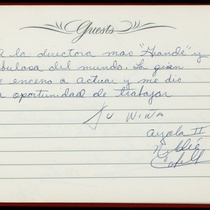 Guests
A la directora mas "Grande" y
bulosa del mundo. La gran
e enceno a actuar y me dio
a oportunidad de trabajar
Su niña
Ayala II